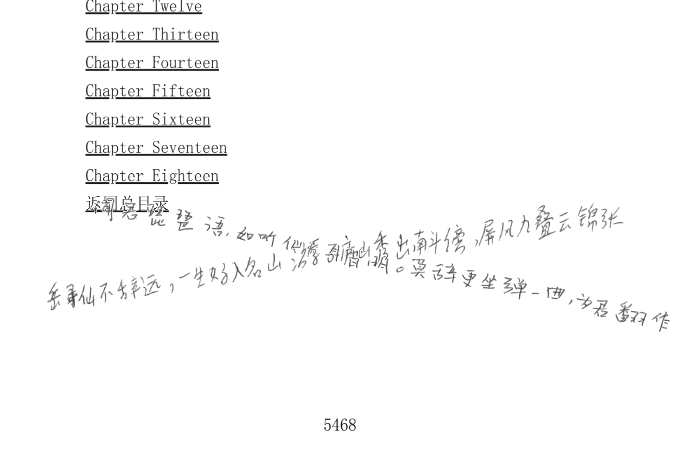 Chapter Twelve
Chapter Thirteen
Chapter Fourteen
Chapter Fifteen
Chapter Sixteen
Chapter Seventeen
Chapter Eighteen
返回总目录
闻君琵琶语,如听仙乐耳暂明。莫辞更坐弹一曲,为君翻作
岳寻仙不辞远,一生好入名山游庐山秀出南斗傍,屏风九叠云锦张
5468